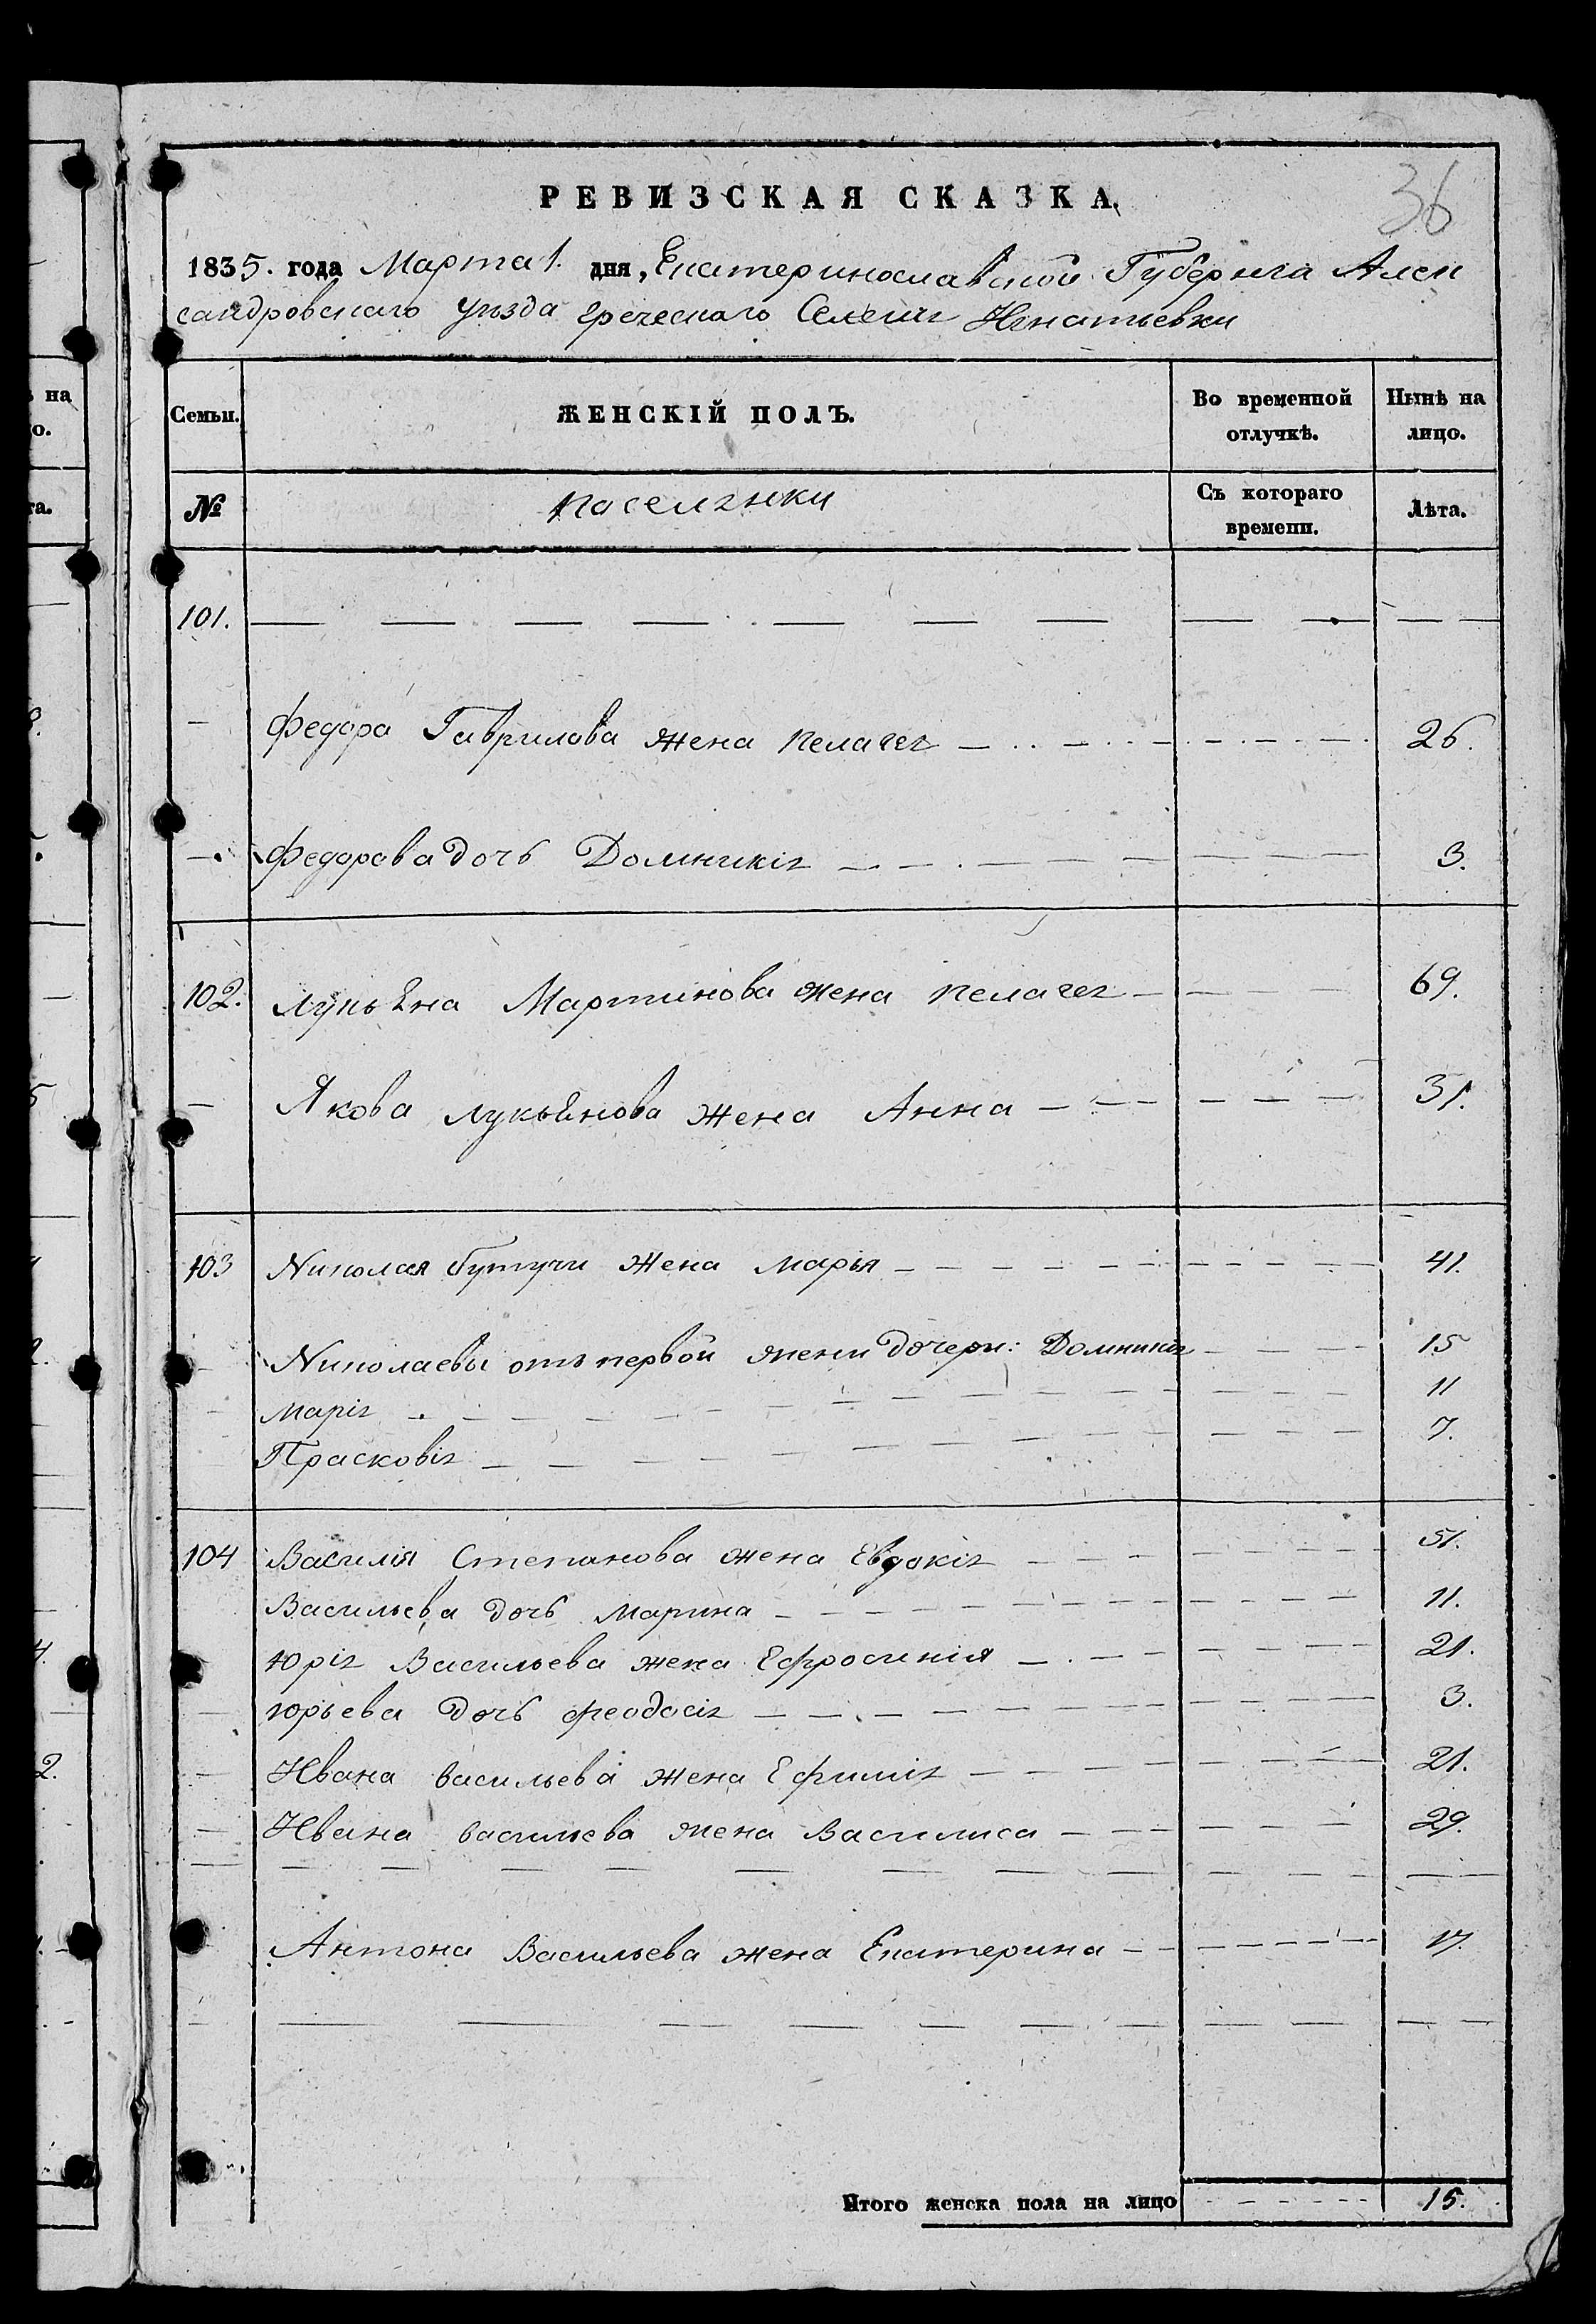 36
РЕВИЗСКАЯ СКАЗКА.
1835. года Марта 1. дня, Екатеринославской Губернiи Алек
сандровскаго уѣзда греческаго Селенiя Игнатьевки
Семьи.
ЖЕНСКІЙ ПОЛЪ.
Во временной отлучкѣ.
Нынѣ на лицо.
№
поселянки
Съ котораго времени.
Лѣта.
101.
Федора Гаврилова жена пелагея 26.
Федорова дочь Домникія 3.
102. лукьяна Мартинова жена пелагея 69.
Якова лукьянова жена Анна 31.
103 Николая бутучи жена марья 41.
Николаевы отъ первой жени дочери: Домникія 15
марія 11
Прасковія 7.
104 Василія Степанова жена Евдокія 51.
Васильева дочь марина 11.
юрія Васильева жена Ефросинія 21.
юрьева дочь феодосія 3.
Ивана васильева жена Ефимія 21.
Ивана васильева жена Василиса 29.
Антона Васильева жена Екатерина 17.
Итого женска пола на лицо 15.